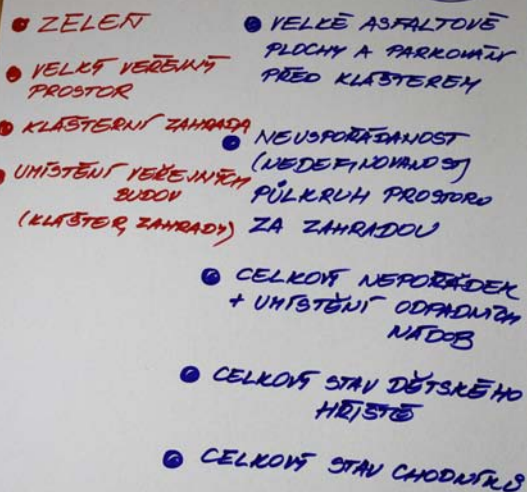 ZELEŇ
VELKÝ VEŘEJNÝ
PROSTOR
KLÁŠTERNÍ ZAHRADA
UMÍSTĚNÍ VEŘEJNÝCH
BUDOV
(KLÁŠTER, ZAHRADY)
VELKÉ ASFALTOVÉ
PLOCHY A PARKOVÁNÍ
PŘED KLÁŠTEREM
NEUSPOŘÁDANOST
(NEDEFINOVANOST)
PŮLKRUH PROSTORU
ZA ZAHRADOU
CELKOVÝ NEPOŘÁDEK
+ UMÍSTĚNÍ ODPADNÍCH
NÁDOB
CELKOVÝ STAV DĚTSKÉHO
HŘIŠTĚ
CELKOVÝ STAV CHODNÍKŮ